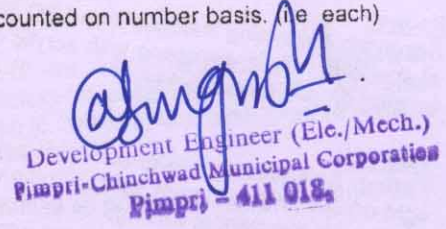 counted on number basis. (ie each)
Development Engineer (Ele./Mech.)
Pimpri-Chinchwad Municipal Corporation
Pimpri - 411 018.